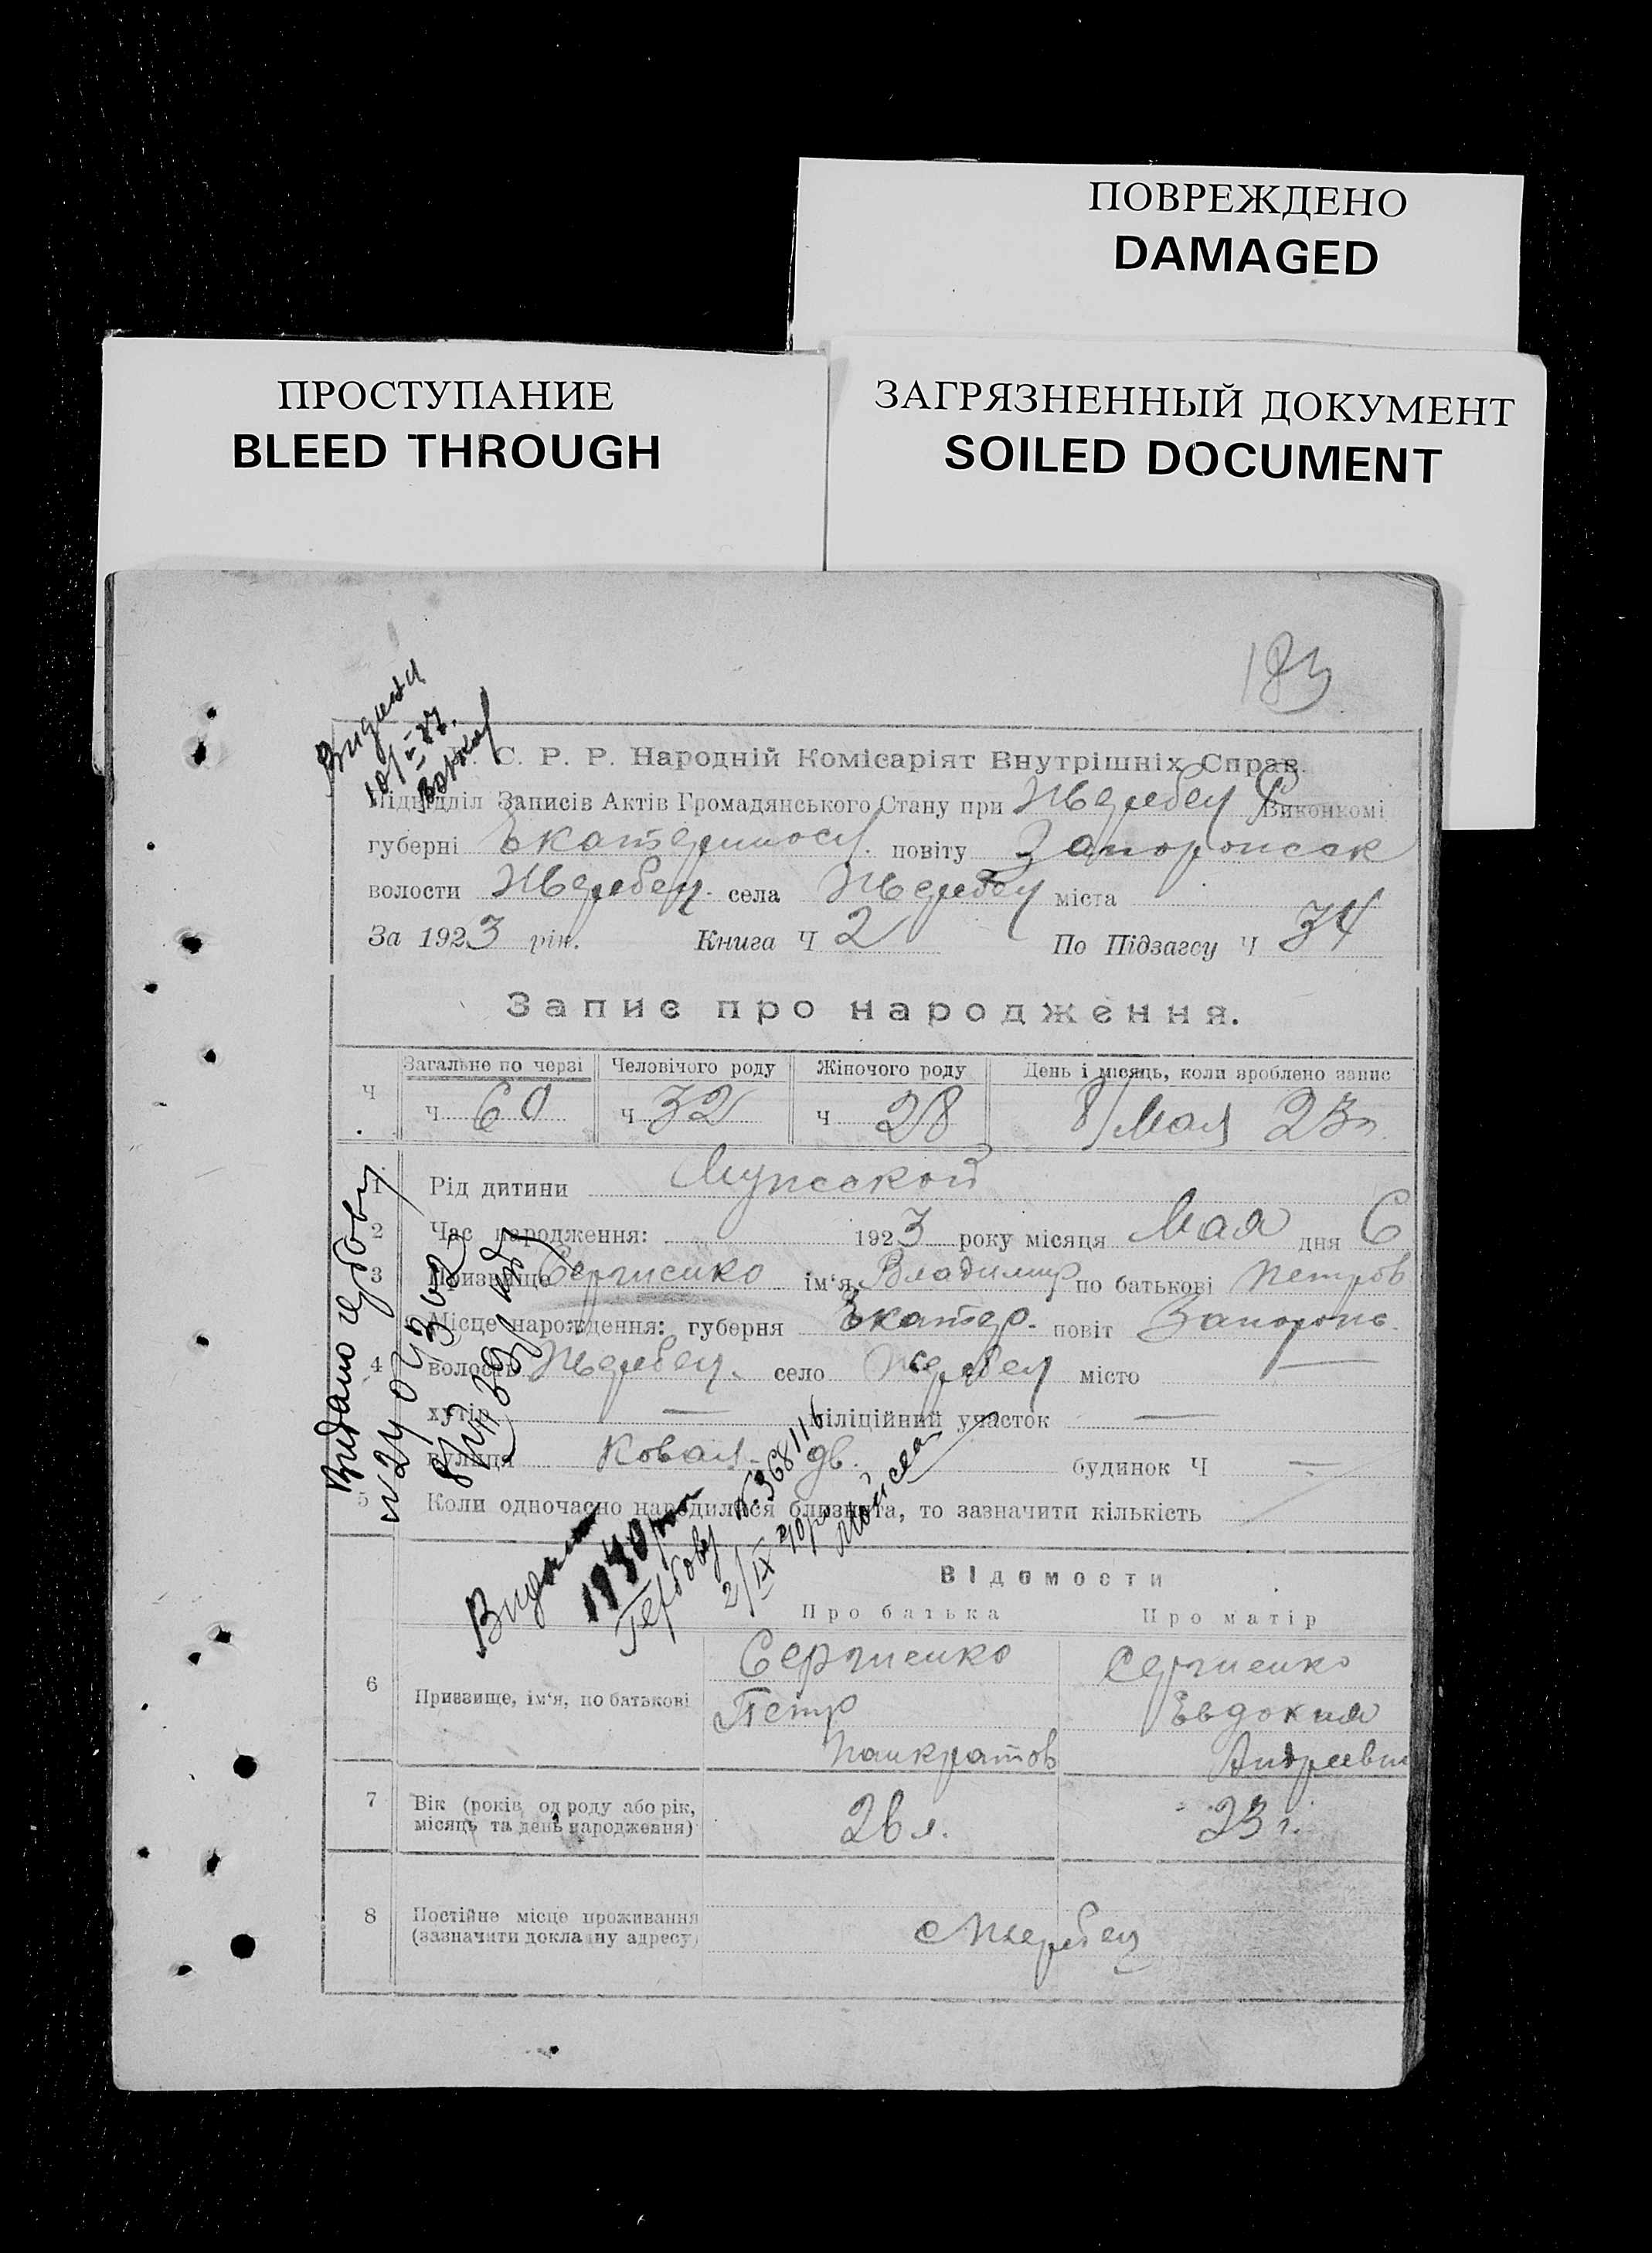 ПОВРЕЖДЕНО
DAMAGED
ПРОСТУПАНИЕ
BLEED THROUGH
ЗАГРЯЗНЕННЫЙ ДОКУМЕНТ
SOILED DOCUMENT
183
С. Р. Р. Народній Комісаріят Внутрішніх Справ.
Підвідділ Записів Актів Громадянського Стану при Жеребец Виконкомі
губерні Екатеринос. повіту Запорожск
волости Жеребец. села Жеребец міста
За 1923 рік. Книга Ч 2 По Підзагсу Ч 34
Запис про народження.
Ч Загальне по черзі Человічого роду Жіночого роду День і місяць, коли зроблено запис
Ч 60 Ч 32 Ч 28 8/Мая 23 г.
1 Рід дитини Мужской
2 Час народження: 1923 року місяця Мая дня 6
3 Призвище Сергиенко ім'я Владимир по батькові Петров
Місце нарождення: губерня Екатер. повіт Запорож.
4 волость Жеребец. село Жеребец місто —
хутір — міліційний участок —
вулиця Ковал- дв. будинок Ч —
5 Коли одночасно народилися близнята, то зазначити кількість
Видано гербову
Гербову № 368116
2/IX 40р
Відомости
Про батька Про матір
6 Призвище, ім'я, по батькові
Сергиенко Сергиенко
Петр Евдокия
Панкратов Андреевн
7 Вік (років од роду або рік, місяць та день народження) 26 л. 23 г.
8 Постійне місце проживання (зазначити докладну адресу) с Жеребец